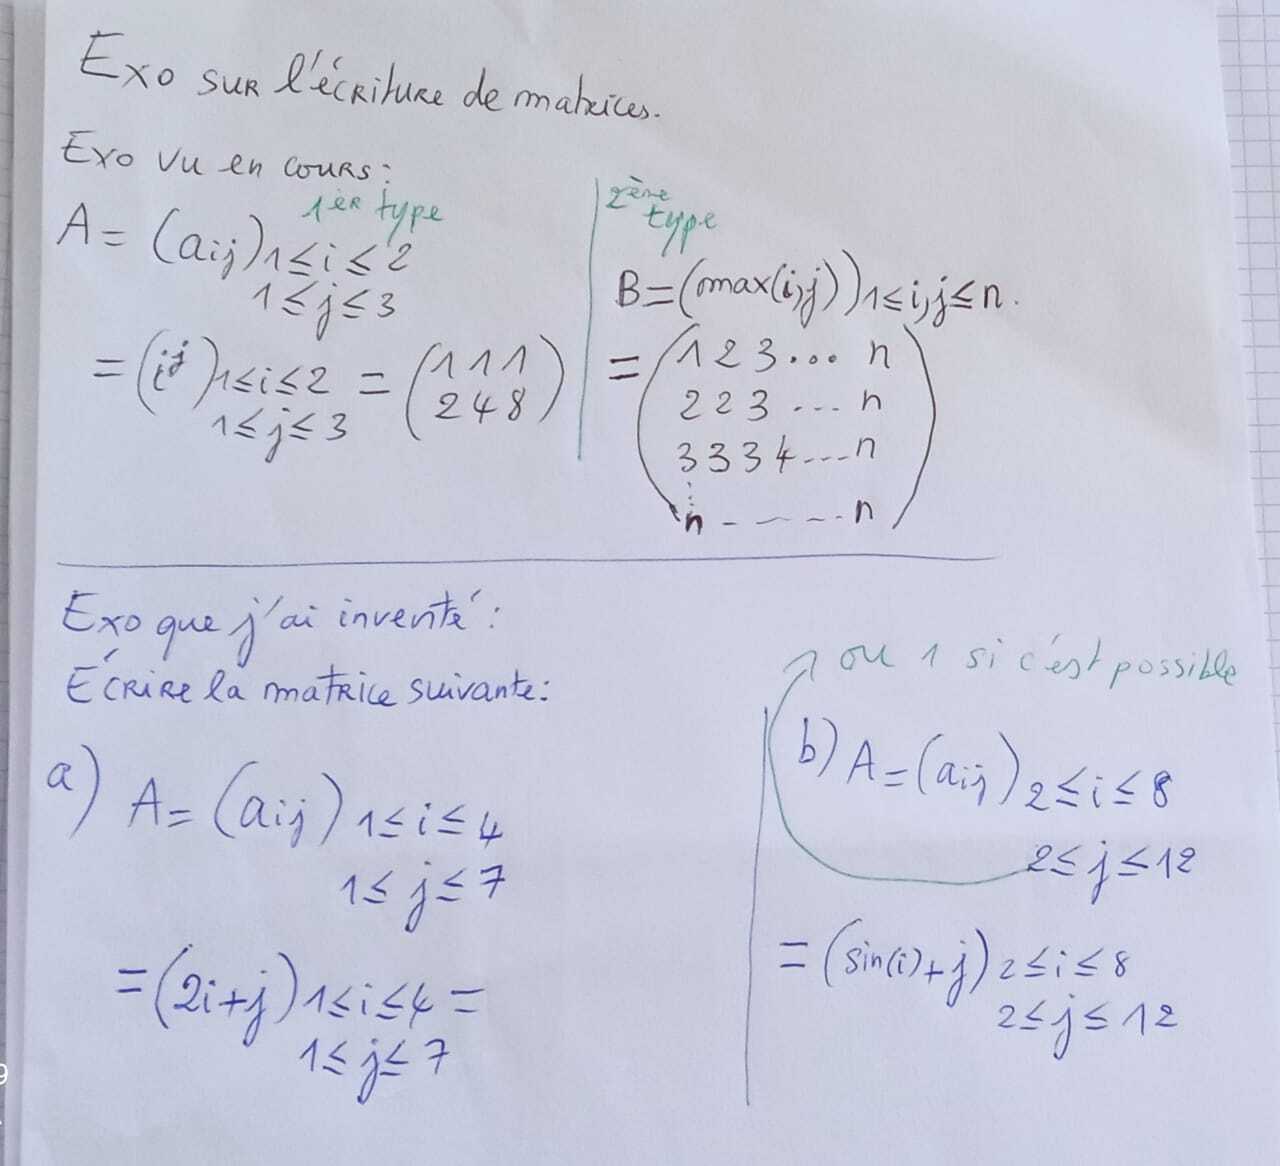 Exo sur l'écriture de matrices.
Exo vu en cours:
1er type
A = (aij) 1≤i≤2
1≤j≤3
= (i^j) 1≤i≤2 = (1 1 1
2 4 8)
1≤j≤3
2ème type
B = (max(i,j)) 1≤i,j≤n.
= (1 2 3 ... n
2 2 3 ... n
3 3 3 4 ... n
⋮
n - - - . n)
Exo que j'ai inventé:
Écrire la matrice suivante:
a) A = (aij) 1≤i≤4
1≤j≤7
= (2i+j) 1≤i≤4 =
1≤j≤7
ou 1 si c'est possible
b) A = (aij) 2≤i≤8
2≤j≤12
= (sin(i)+j) 2≤i≤8
2≤j≤12
9